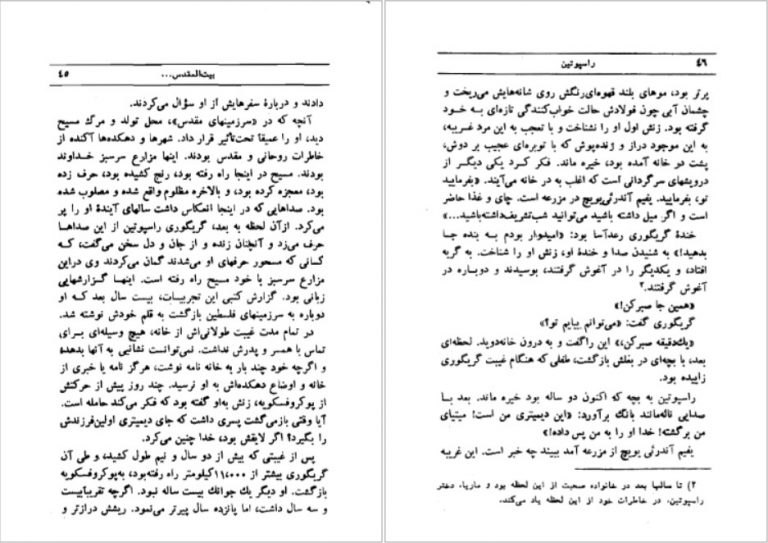 بیت‌المقدس... ۴۵
دادند و دربارهٔ سفرهایش از او سؤال می‌کردند.
آنچه که در «سرزمینهای مقدس»، محل تولد و مرگ مسیح
دید، او را عمیقاً تحت‌تأثیر قرار داد. شهرها و دهکده‌ها آکنده از
خاطرات روحانی و مقدس بودند. اینها مزارع سرسبز خداوند
بودند. مسیح در اینجا راه رفته بود، رنج کشیده بود، حرف زده
بود، معجزه کرده بود، و بالاخره مظلوم واقع شده و مصلوب شده
بود. صداهایی که در اینجا انعکاس داشت سالهای آیندهٔ او را پر
کرد. ازآن لحظه به بعد، گریگوری راسپوتین از این صداها
حرف می‌زد و آنچنان زنده و از جان و دل سخن می‌گفت، که
کسانی که مسحور حرفهای او می‌شدند گمان می‌کردند وی دراین
مزارع سرسبز با خود مسیح راه رفته است. اینها گزارشهایی
زبانی بود. گزارش کتبی این تجربیات، بیست سال بعد که او
دوباره به سرزمینهای فلسطین بازگشت به قلم خودش نوشته شد.
در تمام مدت غیبت طولانی‌اش از خانه، هیچ وسیله‌ای برای
تماس با همسر و پدرش نداشت. نمی‌توانست نشانیی به آنها بدهد؛
و اگرچه خود چند بار به خانه نامه نوشت، هرگز نامه یا خبری از
خانه و اوضاع دهکده‌اش به او نرسید. چند روز پیش از حرکتش
از پوکروفسکویه، زنش به‌او گفته بود که فکر می‌کند حامله است.
آیا وقتی بازمی‌گشت پسری داشت که جای دیمیتری اولین‌فرزندش
را بگیرد؟ اگر لایقش بود، خدا چنین می‌کرد.
پس از غیبتی که بیش از دو سال و نیم طول کشید، و طی آن
گریگوری بیشتر از ۱۱٬۰۰۰کیلومتر راه رفته‌بود، به‌پوکروفسکویه
بازگشت. او دیگر یك جوانك بیست ساله نبود. اگرچه تقریباًبیست
و سه سال داشت، اما پانزده سال پیرتر می‌نمود. ریشش درازتر و
۴۶ راسپوتین
پرتر بود، موهای بلند قهوه‌ای‌رنگش روی شانه‌هایش می‌ریخت و
چشمان آبی چون فولادش حالت خواب‌کنندگی تازه‌ای به خود
گرفته بود. زنش اول او را نشناخت و با تعجب به این مرد غریبه،
به این موجود دراز و ژنده‌پوش که با توبره‌ای عجیب بر دوش،
پشت در خانه آمده بود، خیره ماند. فکر کرد یکی دیگر از
درویشهای سرگردانی است که اغلب به در خانه می‌آیند. «بفرمایید
تو، بفرمایید. یفیم آندرئی‌یویچ در مزرعه است. چای و غذا حاضر
است و اگر میل داشته باشید می‌توانید شب‌تشریف‌داشته‌باشید...»
خندهٔ گریگوری رعدآسا بود: «امیدوار بودم به بنده جا
بدهید!» به شنیدن صدا و خندهٔ او، زنش او را شناخت. به گریه
افتاد، و یکدیگر را در آغوش گرفتند، بوسیدند و دوباره در
آغوش گرفتند.۲
«همین جا صبرکن!»
گریگوری گفت: «می‌توانم بیایم تو؟»
«یك‌دقیقه صبرکن»، این راگفت و به درون خانه‌دوید. لحظه‌ای
بعد، با بچه‌ای در بغلش بازگشت، طفلی که هنگام غیبت گریگوری
زاییده بود.
راسپوتین به بچه که اکنون دو ساله بود خیره ماند. بعد با
صدایی ناله‌مانند بانگ برآورد: «این دیمیتری من است! میتیای
من برگشته! خدا او را به من پس داده!»
یفیم آندرئی یویچ از مزرعه آمد ببیند چه خبر است. این غریبه
۲) تا سالها بعد در خانواده صحبت از این لحظه بود و ماریا، دختر
راسپوتین، در خاطرات خود از این لحظه یاد می‌کند.